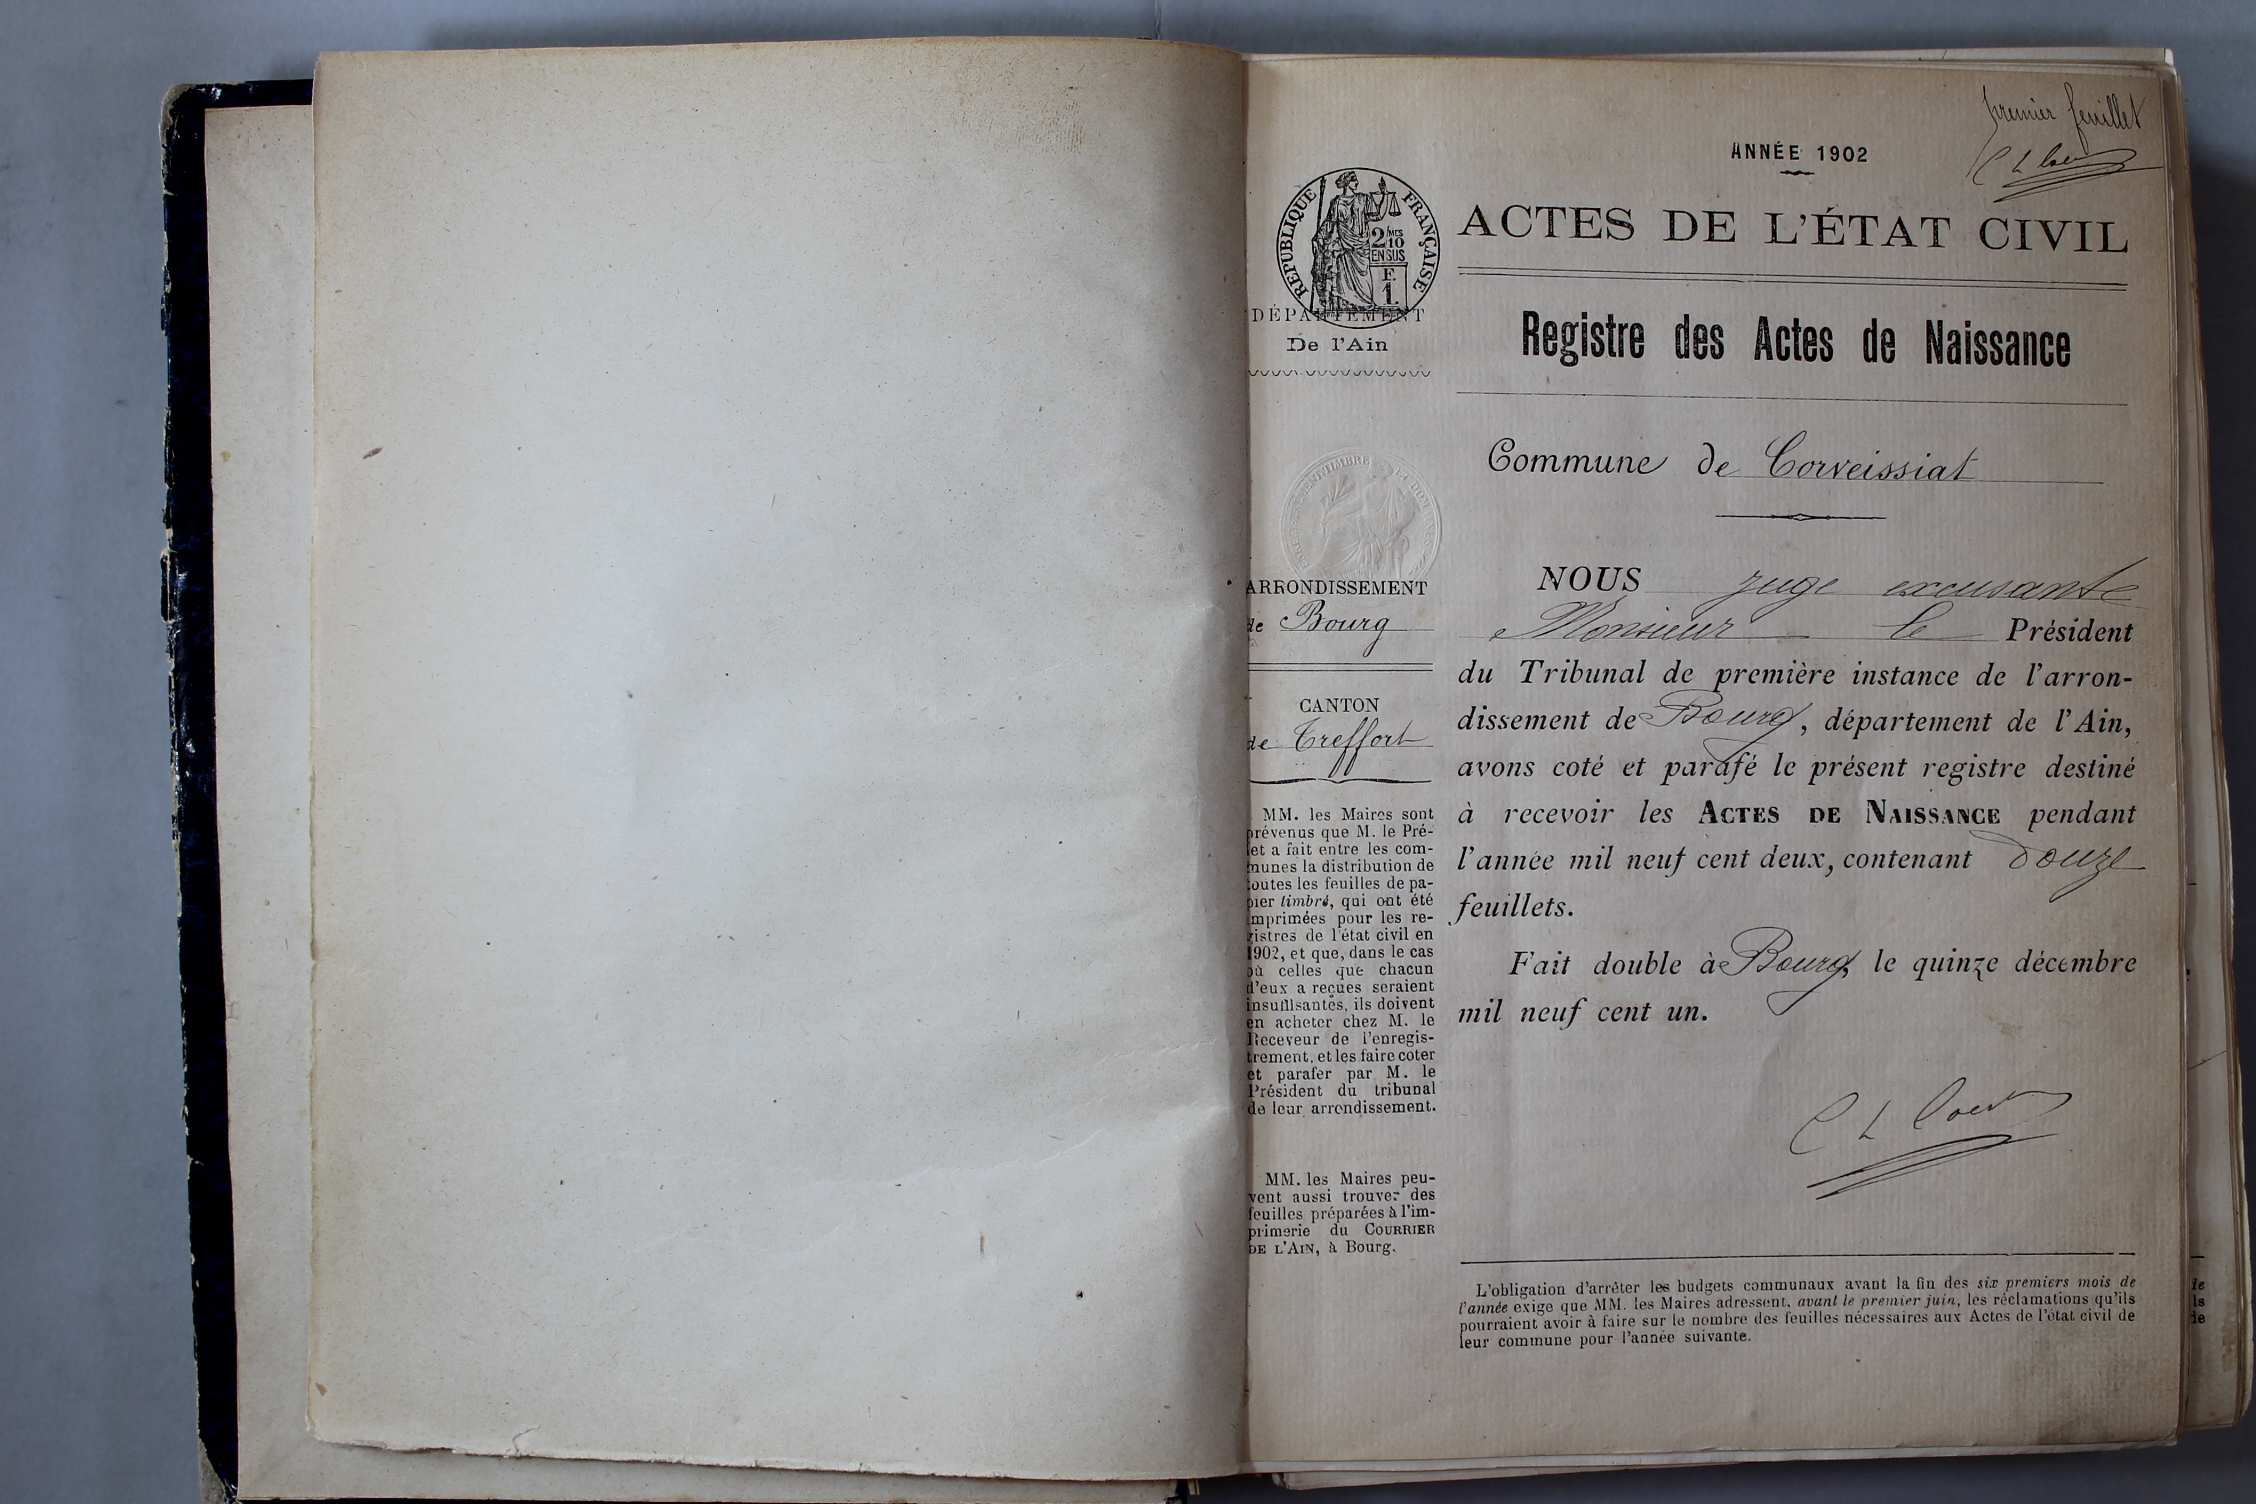 premier feuillet
ANNÉE 1902
ACTES DE L'ÉTAT CIVIL
RÉPUBLIQUE FRANÇAISE
2/10 MES
EN SUS
F.
1.
DÉPARTEMENT
De l'Ain
Registre des Actes de Naissance
Commune de Corveissiat
ARRONDISSEMENT
de Bourg
CANTON
de Treffort
MM. les Maires sont
prévenus que M. le Pré-
fet a fait entre les com-
munes la distribution de
toutes les feuilles de pa-
pier timbré, qui ont été
imprimées pour les re-
gistres de l'état civil en
1902, et que, dans le cas
où celles que chacun
d'eux a reçues seraient
insuffisantes, ils doivent
en acheter chez M. le
Receveur de l'enregis-
trement, et les faire coter
et parafer par M. le
Président du tribunal
de leur arrondissement.
MM. les Maires peu-
vent aussi trouver des
feuilles préparées à l'im-
primerie du COURRIER
DE L'AIN, à Bourg.
NOUS juge excusant
Monsieur le Président
du Tribunal de première instance de l'arron-
dissement de Bourg, département de l'Ain,
avons coté et parafé le présent registre destiné
à recevoir les ACTES DE NAISSANCE pendant
l'année mil neuf cent deux, contenant douze
feuillets.
Fait double à Bourg, le quinze décembre
mil neuf cent un.
L'obligation d'arrêter les budgets communaux avant la fin des six premiers mois de
l'année exige que MM. les Maires adressent, avant le premier juin, les réclamations qu'ils
pourraient avoir à faire sur le nombre des feuilles nécessaires aux Actes de l'état civil de
leur commune pour l'année suivante.